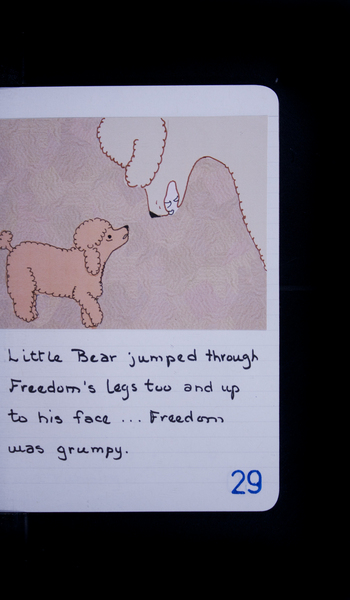 Little Bear jumped through
Freedom's legs too and up
to his face ... Freedom
was grumpy.
29